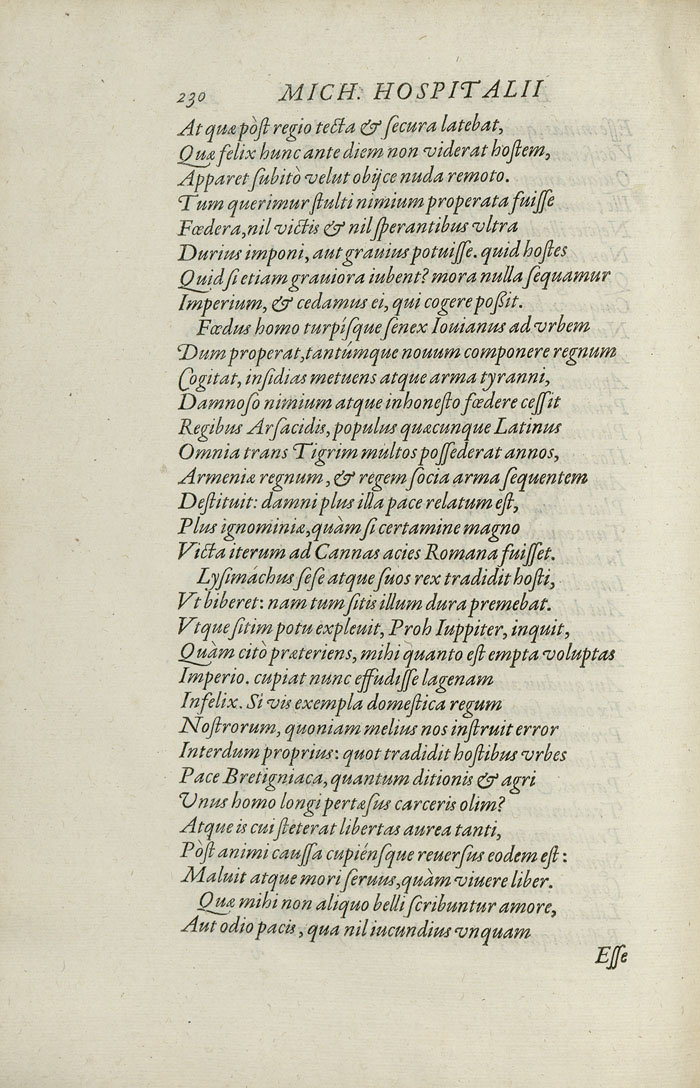 230 MICH. HOSPITALII
At quæ pòſt regio tecta & ſecura latebat,
Quæ felix hunc ante diem non viderat hoſtem,
Apparet ſubitò velut obijce nuda remoto.
Tum querimur ſtulti nimium properata fuiſſe
Fœdera, nil victis & nil ſperantibus vltra
Durius imponi, aut grauius potuiſſe. quid hoſtes
Quid ſi etiam grauiora iubent? mora nulla ſequamur
Imperium, & cedamus ei, qui cogere poßit.
Fœdus homo turpíſque ſenex Iouianus ad vrbem
Dum properat, tantúmque nouum componere regnum
Cogitat, inſidias metuens atque arma tyranni,
Damnoſo nimium atque inhoneſto fœdere ceſſit
Regibus Arſacidis, populus quæcunque Latinus
Omnia trans Tigrim multos poſſederat annos,
Armeniæ regnum, & regem ſocia arma ſequentem
Deſtituit: damni plus illa pace relatum eſt,
Plus ignominiæ, quàm ſi certamine magno
Victa iterum ad Cannas acies Romana fuiſſet.
Lyſimachus ſeſe atque ſuos rex tradidit hoſti,
Vt biberet: nam tum ſitis illum dura premebat.
Vtque ſitim potu expleuit, Proh Iuppiter, inquit,
Quàm citò præteriens, mihi quanto eſt empta voluptas
Imperio. cupiat nunc effudiſſe lagenam
Infelix. Si vis exempla domeſtica regum
Noſtrorum, quoniam melius nos inſtruit error
Interdum proprius: quot tradidit hoſtibus vrbes
Pace Bretigniaca, quantum ditionis & agri
Vnus homo longi pertæſus carceris olim?
Atque is cui ſteterat libertas aurea tanti,
Pòſt animi cauſſa cupiénſque reuerſus eodem eſt:
Maluit atque mori ſeruus, quàm viuere liber.
Quæ mihi non aliquo belli ſcribuntur amore,
Aut odio pacis, qua nil iucundius vnquam
Eſſe